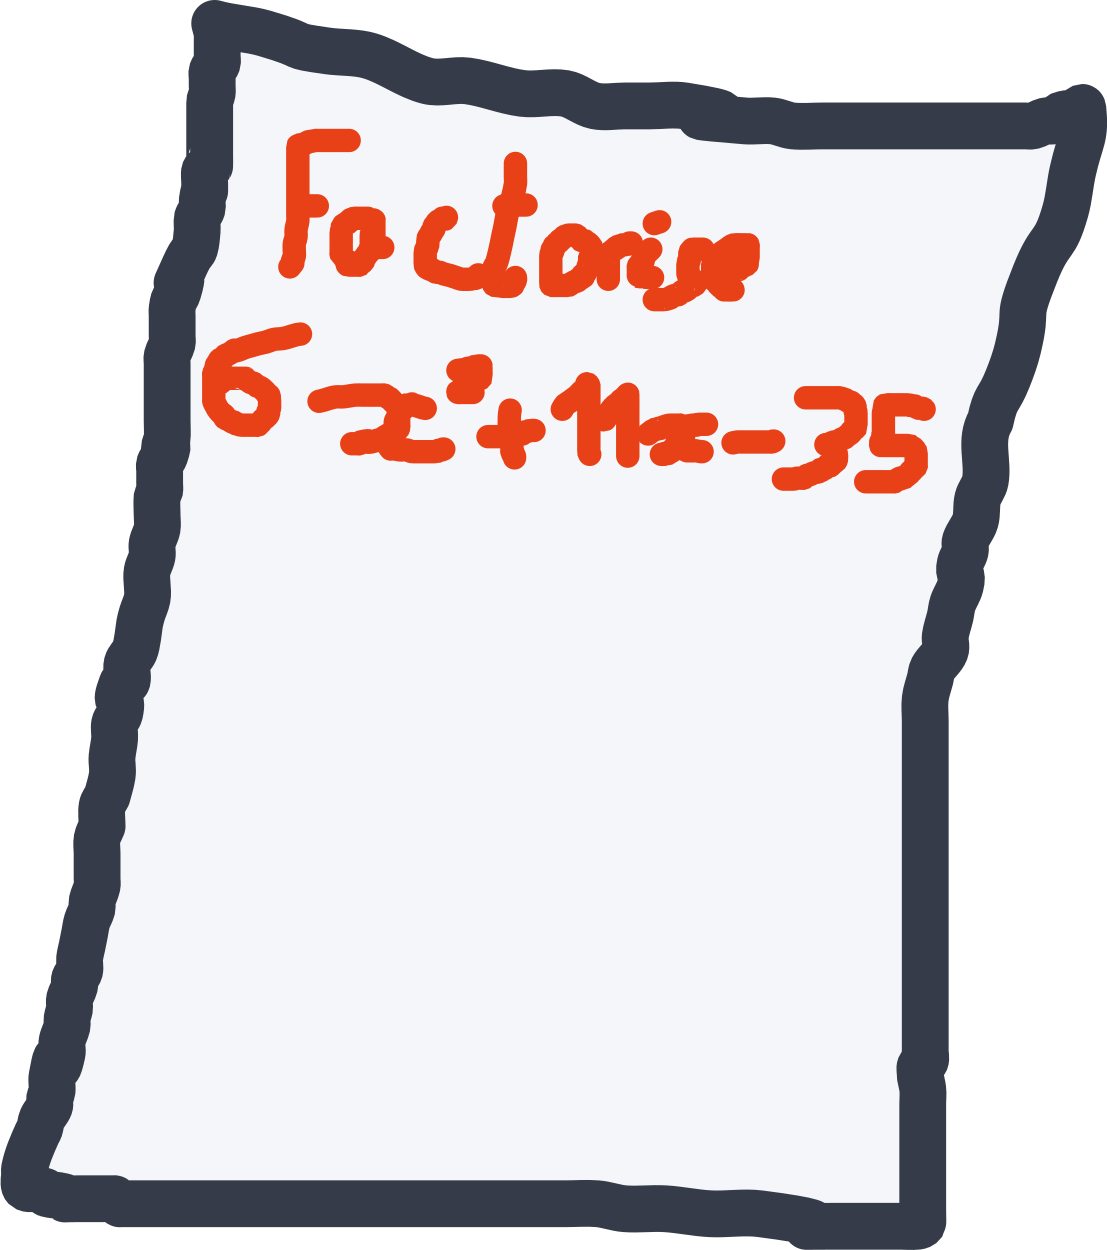 Factorise
6x²+11x-35